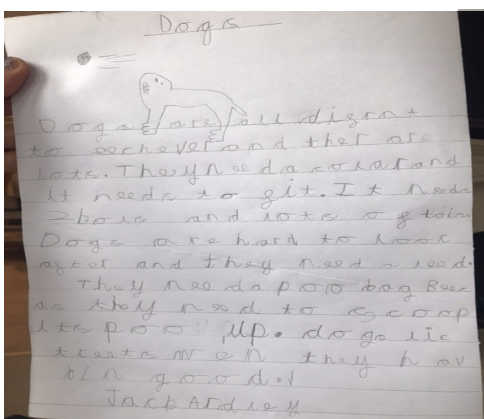 Dogs
Dogs are all difrnt
to eechever and ther are
lots. They Need a colar and
it needs to fit. It needs
2 bols and lots of tois.
Dogs are hard to look
after and they need a leed.
They need a poo bag
as they need to scoop
its poo up. dogs lic
treets wen they hav
bin good.
Jack Ardley